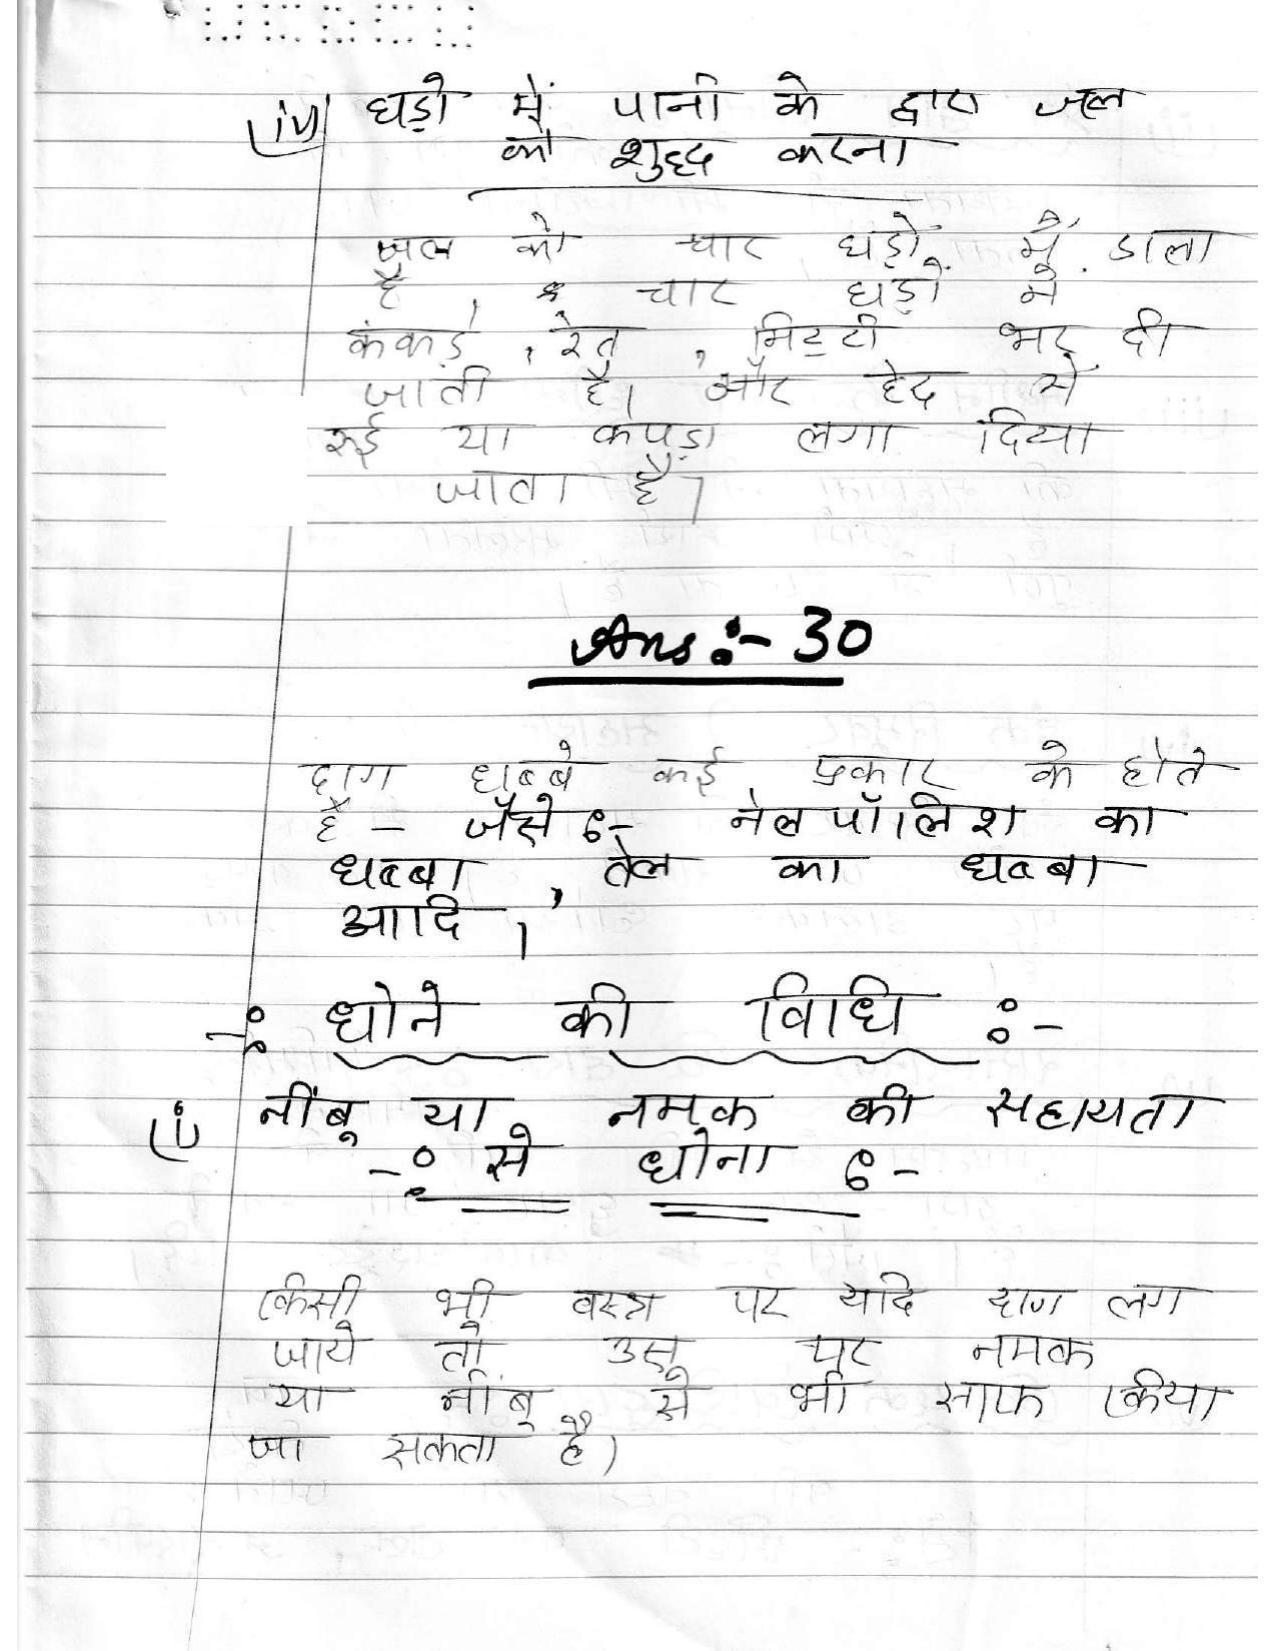 (iv) घड़ो में पानी के द्वारा जल
को शुद्ध करना
जल को चार घड़ों में डाला
है, चार घड़ों में
कंकड़, रेत, मिट्टी भर दी
जाती है। और हेद से
रुई या कपड़ा लगा दिया
जाता है।
Ans :- 30
दाग धब्बे कई प्रकार के होते
है - जैसे :- नेलपॉलिश का
धब्बा, तेल का धब्बा
आदि।
-: धोने की विधि :-
(i) नींबू या नमक की सहायता
-: से धोना :-
किसी भी वस्त्र पर यदि दाग लग
जाये तो उस पर नमक
या नींबू से भी साफ किया
जा सकता है।